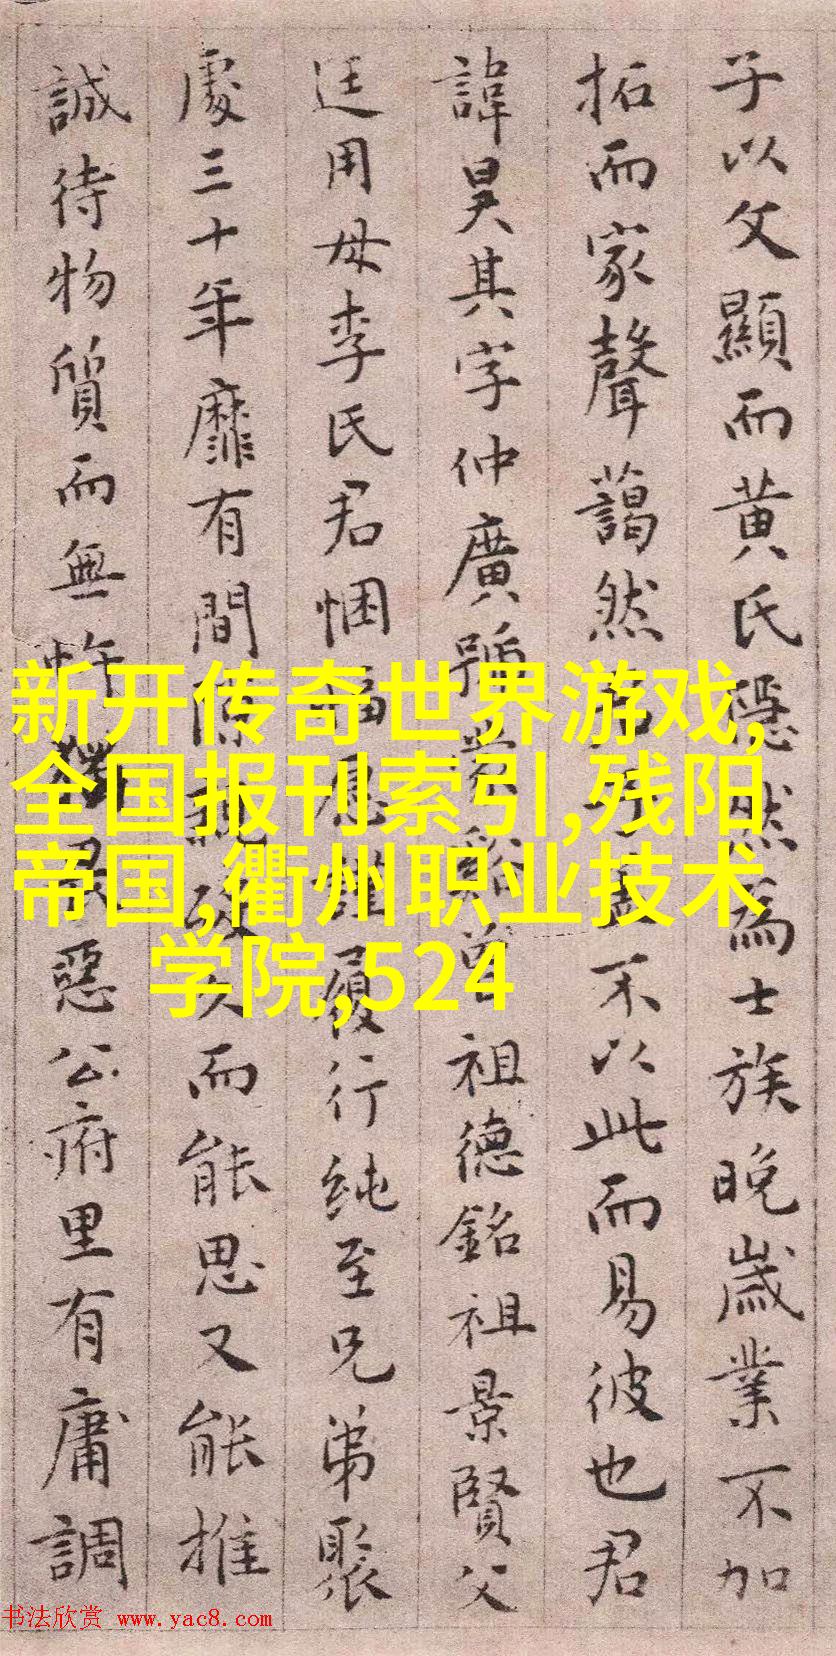 子以父顯而黄氏隱然為士族晚歲業不加
拓而家聲藹然不以此而易彼也君
諱昊其字仲廣號谿曾祖德銘祖景賢父
廷用母李氏君悃愊履行純至兄弟聚
處三十年靡有間而能思又能推
誠待物質而無忤惡公府里有庸調
新开传奇世界游戏,
全国报刊索引,残阳
帝国,衢州职业技术
学院,524
书法欣赏 www.yac8.com